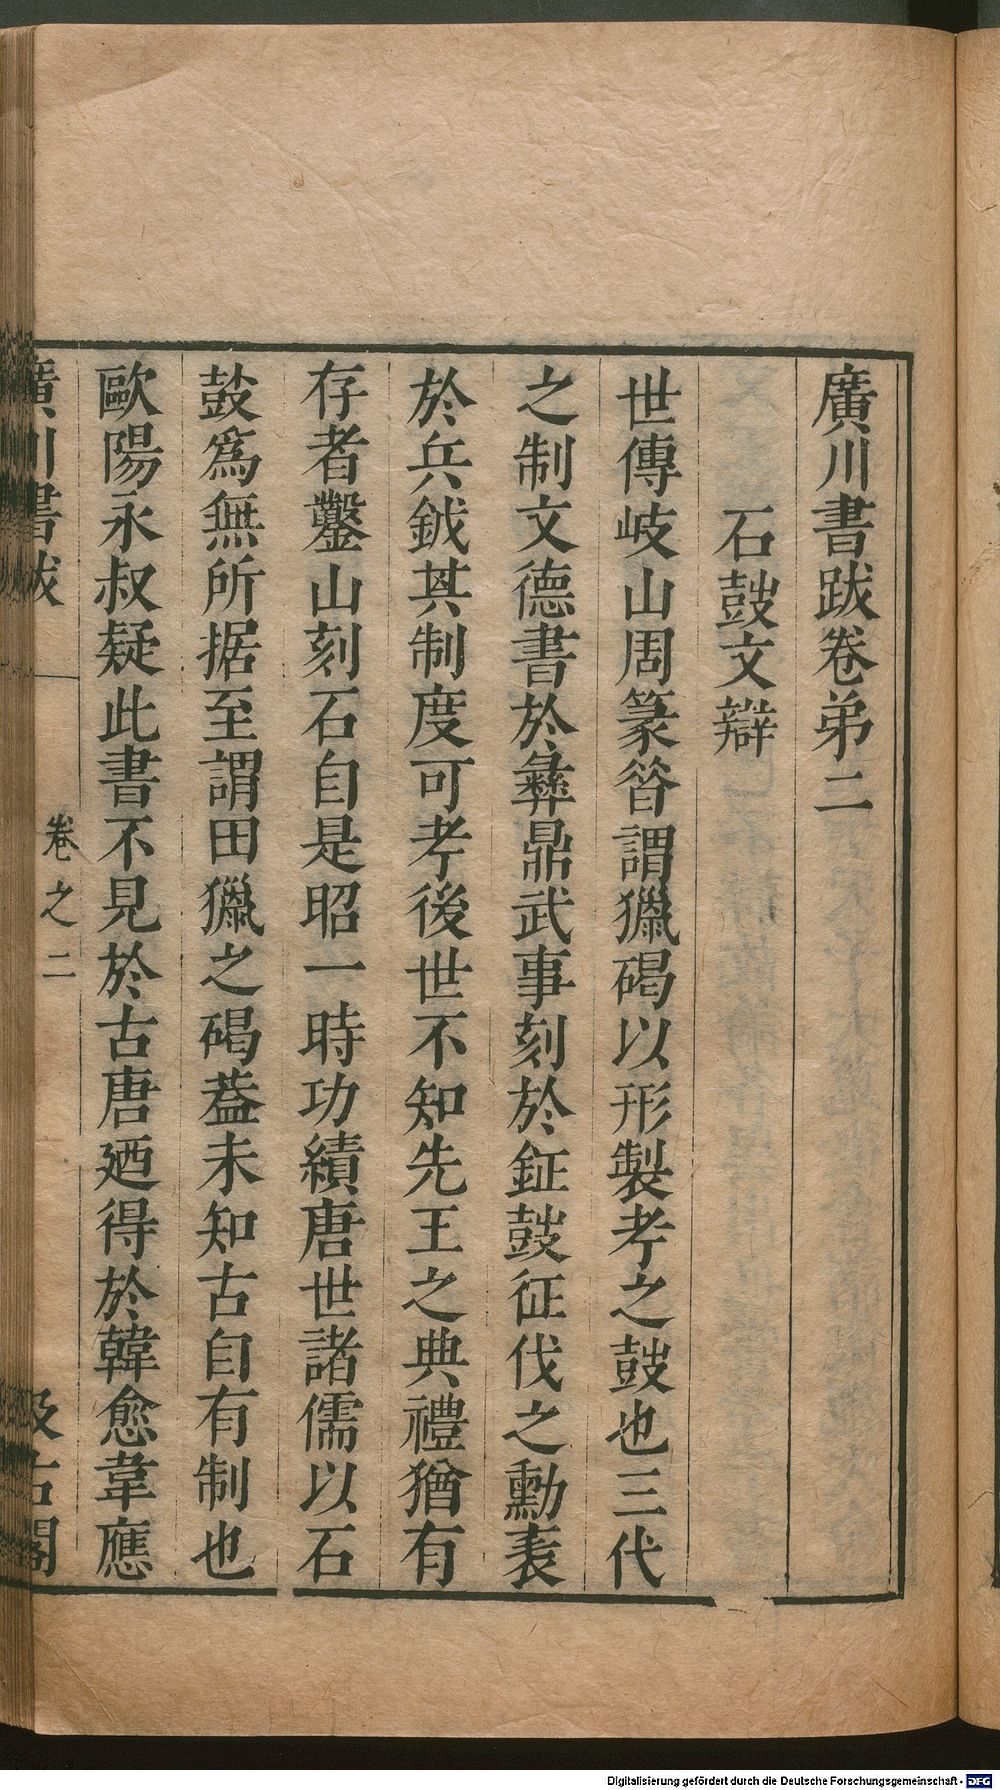 廣川書跋卷弟二
石鼓文辯
世傳岐山周篆昝謂獵碣以形製考之鼓也三代
之制文德書於彝鼎武事刻於鉦鼓征伐之勳表
於兵鉞其制度可考後世不知先王之典禮猶有
存者鑿山刻石自是昭一時功績唐世諸儒以石
鼓爲無所据至謂田獵之碣葢未知古自有制也
歐陽永叔疑此書不見於古唐廼得於韓愈韋應
廣川書跋 卷之二 汲古閣
Digitalisierung gefördert durch die Deutsche Forschungsgemeinschaft - DFG